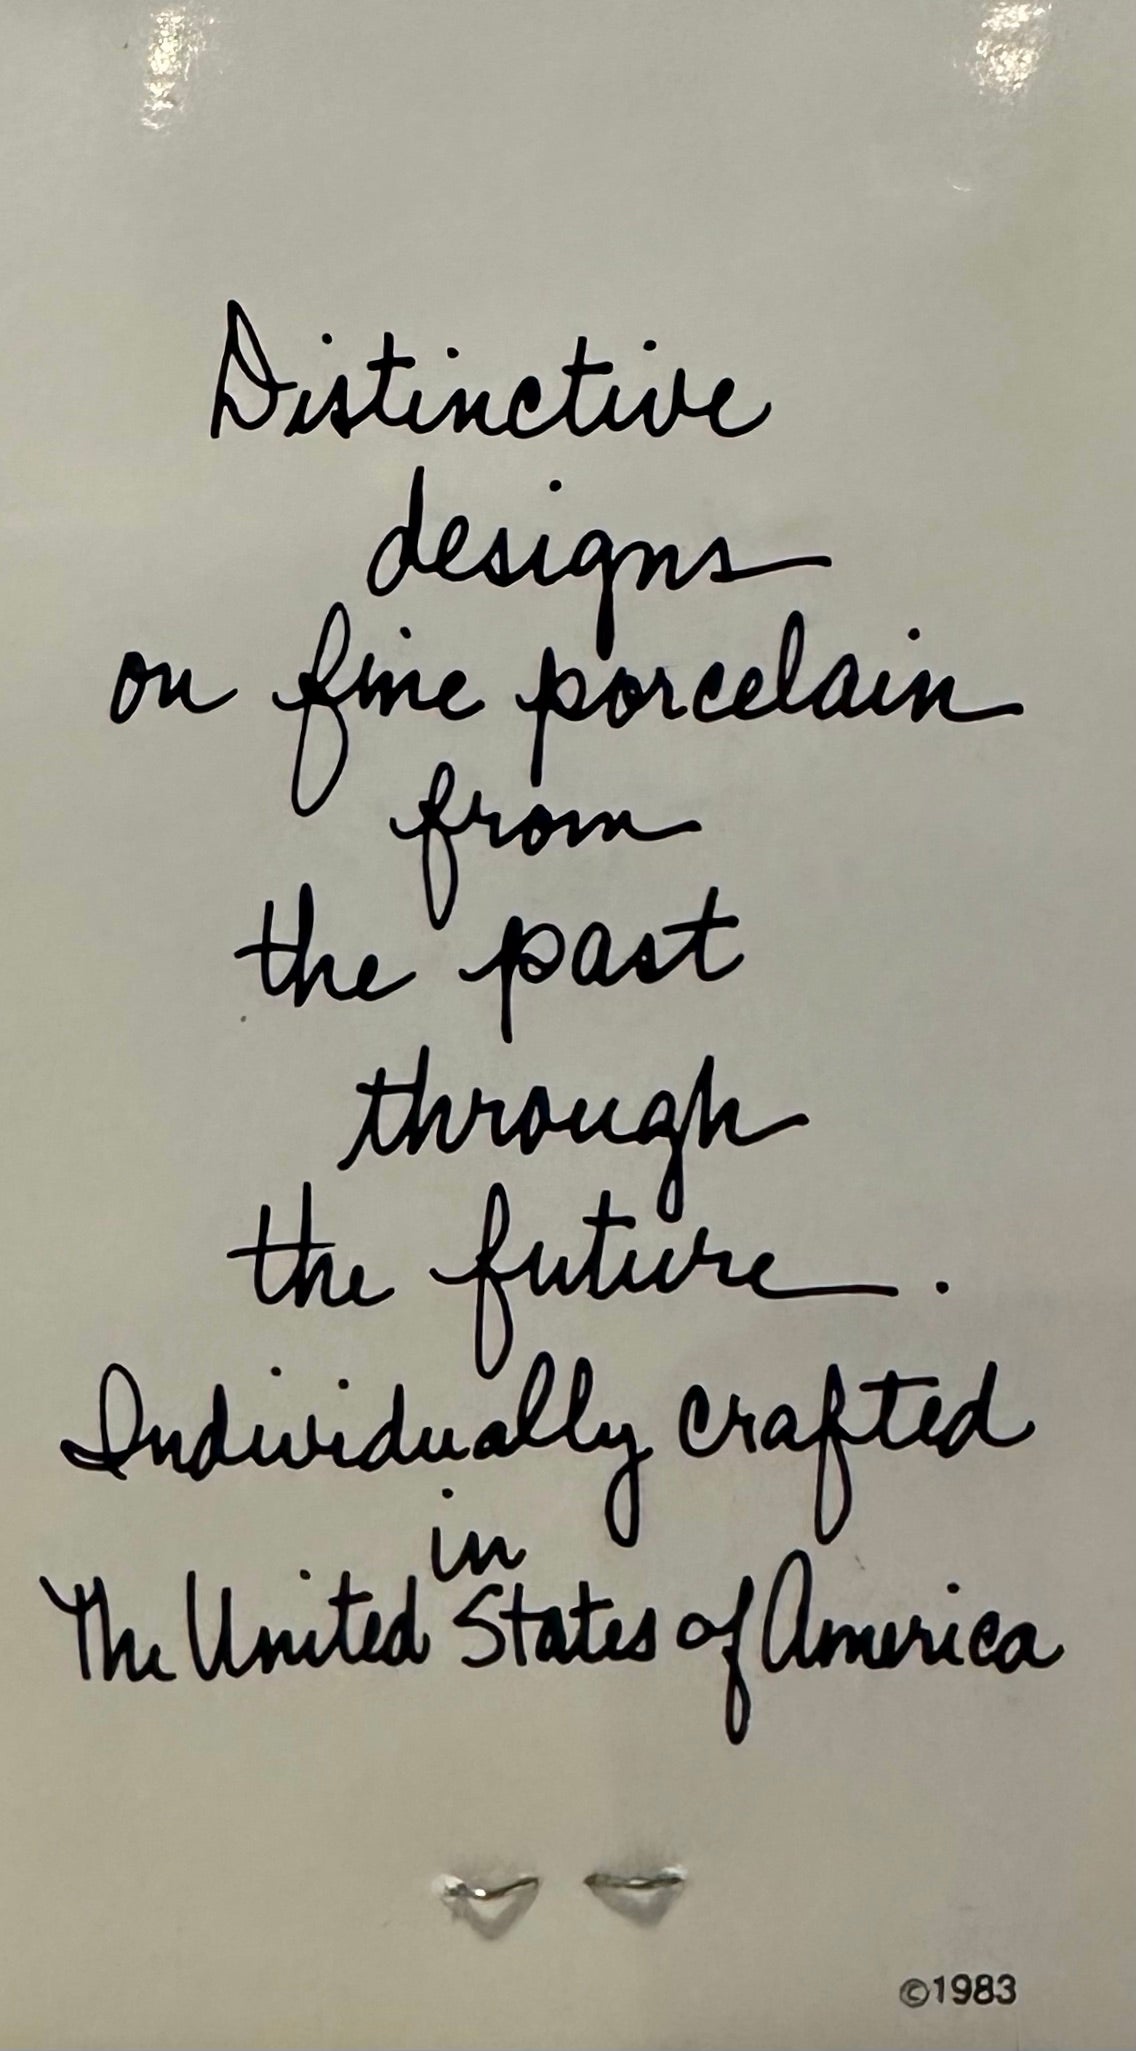 Distinctive
designs
on fine porcelain
from
the past
through
the future.
Individually crafted
in
The United States of America
©1983